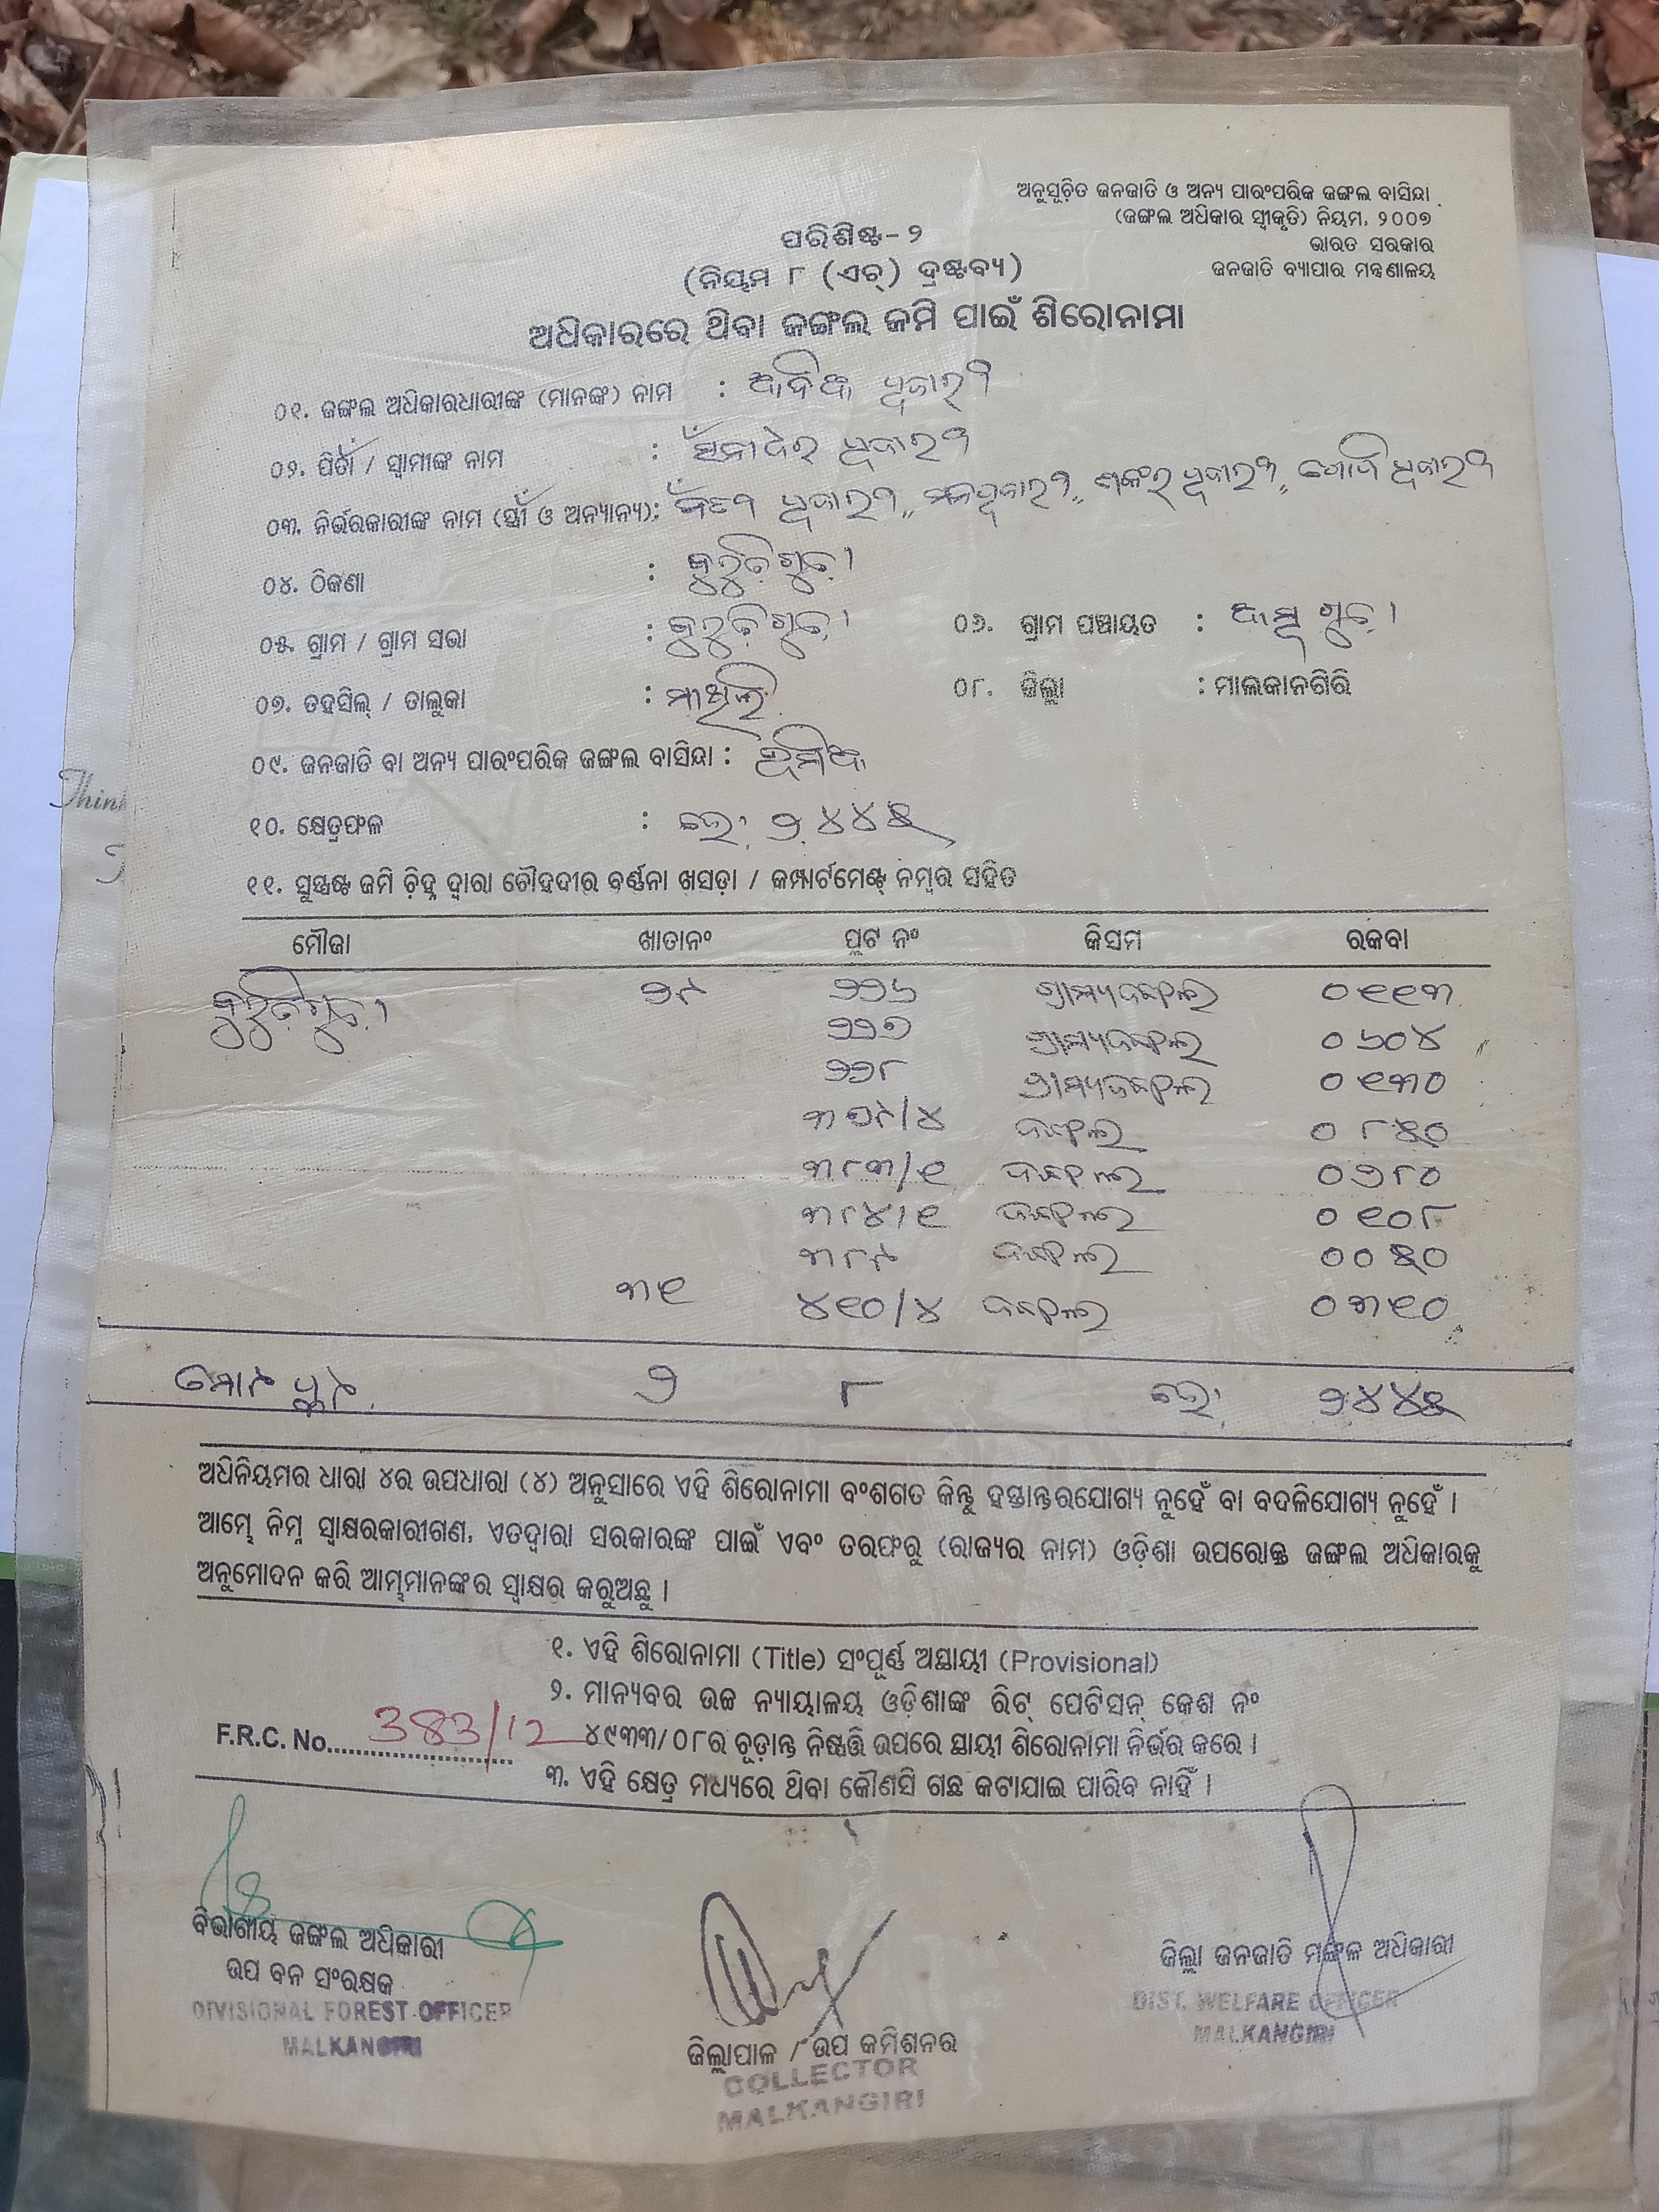 ଅନୁସୂଚିତ ଜନଜାତି ଓ ଅନ୍ୟ ପାରଂପରିକ ଜଙ୍ଗଲ ବାସିନ୍ଦା
(ଜଙ୍ଗଲ ଅଧିକାର ସ୍ୱୀକୃତି) ନିୟମ, ୨୦୦୭
ଭାରତ ସରକାର
ଜନଜାତି ବ୍ୟାପାର ମନ୍ତ୍ରଣାଳୟ
ପରିଶିଷ୍ଟ-୨
(ନିୟମ ୮ (ଏଚ୍) ଦ୍ରଷ୍ଟବ୍ୟ)
ଅଧିକାରରେ ଥିବା ଜଙ୍ଗଲ ଜମି ପାଇଁ ଶିରୋନାମା
୦୧. ଜଙ୍ଗଲ ଅଧିକାରଧାରୀଙ୍କ (ମାନଙ୍କ) ନାମ :
୦୨. ପିତା / ସ୍ୱାମୀଙ୍କ ନାମ :
୦୩. ନିର୍ଭରକାରୀଙ୍କ ନାମ (ସ୍ତ୍ରୀ ଓ ଅନ୍ୟାନ୍ୟ):
୦୪. ଠିକଣା :
୦୫. ଗ୍ରାମ / ଗ୍ରାମ ସଭା : ୦୬. ଗ୍ରାମ ପଞ୍ଚାୟତ :
୦୭. ତହସିଲ୍ / ତାଲୁକା : ମାଥିଲି ୦୮. ଜିଲ୍ଲା : ମାଲକାନଗିରି
୦୯. ଜନଜାତି ବା ଅନ୍ୟ ପାରଂପରିକ ଜଙ୍ଗଲ ବାସିନ୍ଦା :
୧୦. କ୍ଷେତ୍ରଫଳ : ହେ: ୨.୪୪୫
୧୧. ସୁସ୍ପଷ୍ଟ ଜମି ଚିହ୍ନ ଦ୍ୱାରା ଚୌହଦୀର ବର୍ଣ୍ଣନା ଖସଡ଼ା / କମ୍ପାର୍ଟମେଣ୍ଟ୍ ନମ୍ବର ସହିତ
ମୌଜା ଖାତାନଂ ପ୍ଲଟ ନଂ କିସମ ରକବା
୨୯ ୨୨୬ ଗ୍ରାମ୍ୟଜଙ୍ଗଲ ୦୧୧୩
୨୨୭ ଗ୍ରାମ୍ୟଜଙ୍ଗଲ ୦୬୦୪
୨୨୮ ଗ୍ରାମ୍ୟଜଙ୍ଗଲ ୦୧୩୦
ଜଙ୍ଗଲ ୦୮୫୦
୩୮୩/୧ ଜଙ୍ଗଲ ୦୨୮୦
୩୮୪/୧ ଜଙ୍ଗଲ ୦୧୦୮
୩୮୯ ଜଙ୍ଗଲ ୦୦୫୦
୩୧ ୪୧୦/୪ ଜଙ୍ଗଲ ୦୩୧୦
ମୋଟ ପ୍ଲଟ ୨ ୮ ହେ: ୨.୪୪୫
ଅଧିନିୟମର ଧାରା ୪ର ଉପଧାରା (୪) ଅନୁସାରେ ଏହି ଶିରୋନାମା ବଂଶଗତ କିନ୍ତୁ ହସ୍ତାନ୍ତରଯୋଗ୍ୟ ନୁହେଁ ବା ବଦଳିଯୋଗ୍ୟ ନୁହେଁ ।
ଆମ୍ଭେ ନିମ୍ନ ସ୍ୱାକ୍ଷରକାରୀଗଣ, ଏତଦ୍ୱାରା ସରକାରଙ୍କ ପାଇଁ ଏବଂ ତରଫରୁ (ରାଜ୍ୟର ନାମ) ଓଡ଼ିଶା ଉପରୋକ୍ତ ଜଙ୍ଗଲ ଅଧିକାରକୁ
ଅନୁମୋଦନ କରି ଆମ୍ଭମାନଙ୍କର ସ୍ୱାକ୍ଷର କରୁଅଛୁ ।
୧. ଏହି ଶିରୋନାମା (Title) ସଂପୂର୍ଣ୍ଣ ଅସ୍ଥାୟୀ (Provisional)
୨. ମାନ୍ୟବର ଉଚ୍ଚ ନ୍ୟାୟାଳୟ ଓଡ଼ିଶାଙ୍କ ରିଟ୍ ପେଟିସନ୍ କେଶ ନଂ
F.R.C. No. 383/12 ୪୯୩୩/୦୮ର ଚୂଡ଼ାନ୍ତ ନିଷ୍ପତ୍ତି ଉପରେ ସ୍ଥାୟୀ ଶିରୋନାମା ନିର୍ଭର କରେ ।
୩. ଏହି କ୍ଷେତ୍ର ମଧ୍ୟରେ ଥିବା କୌଣସି ଗଛ କଟାଯାଇ ପାରିବ ନାହିଁ ।
ବିଭାଗୀୟ ଜଙ୍ଗଲ ଅଧିକାରୀ
ଉପ ବନ ସଂରକ୍ଷକ
DIVISIONAL FOREST OFFICER
MALKANGIRI
ଜିଲ୍ଲାପାଳ / ଉପ କମିଶନର
COLLECTOR
MALKANGIRI
ଜିଲ୍ଲା ଜନଜାତି ମଙ୍ଗଳ ଅଧିକାରୀ
DIST. WELFARE OFFICER
MALKANGIRI
Think